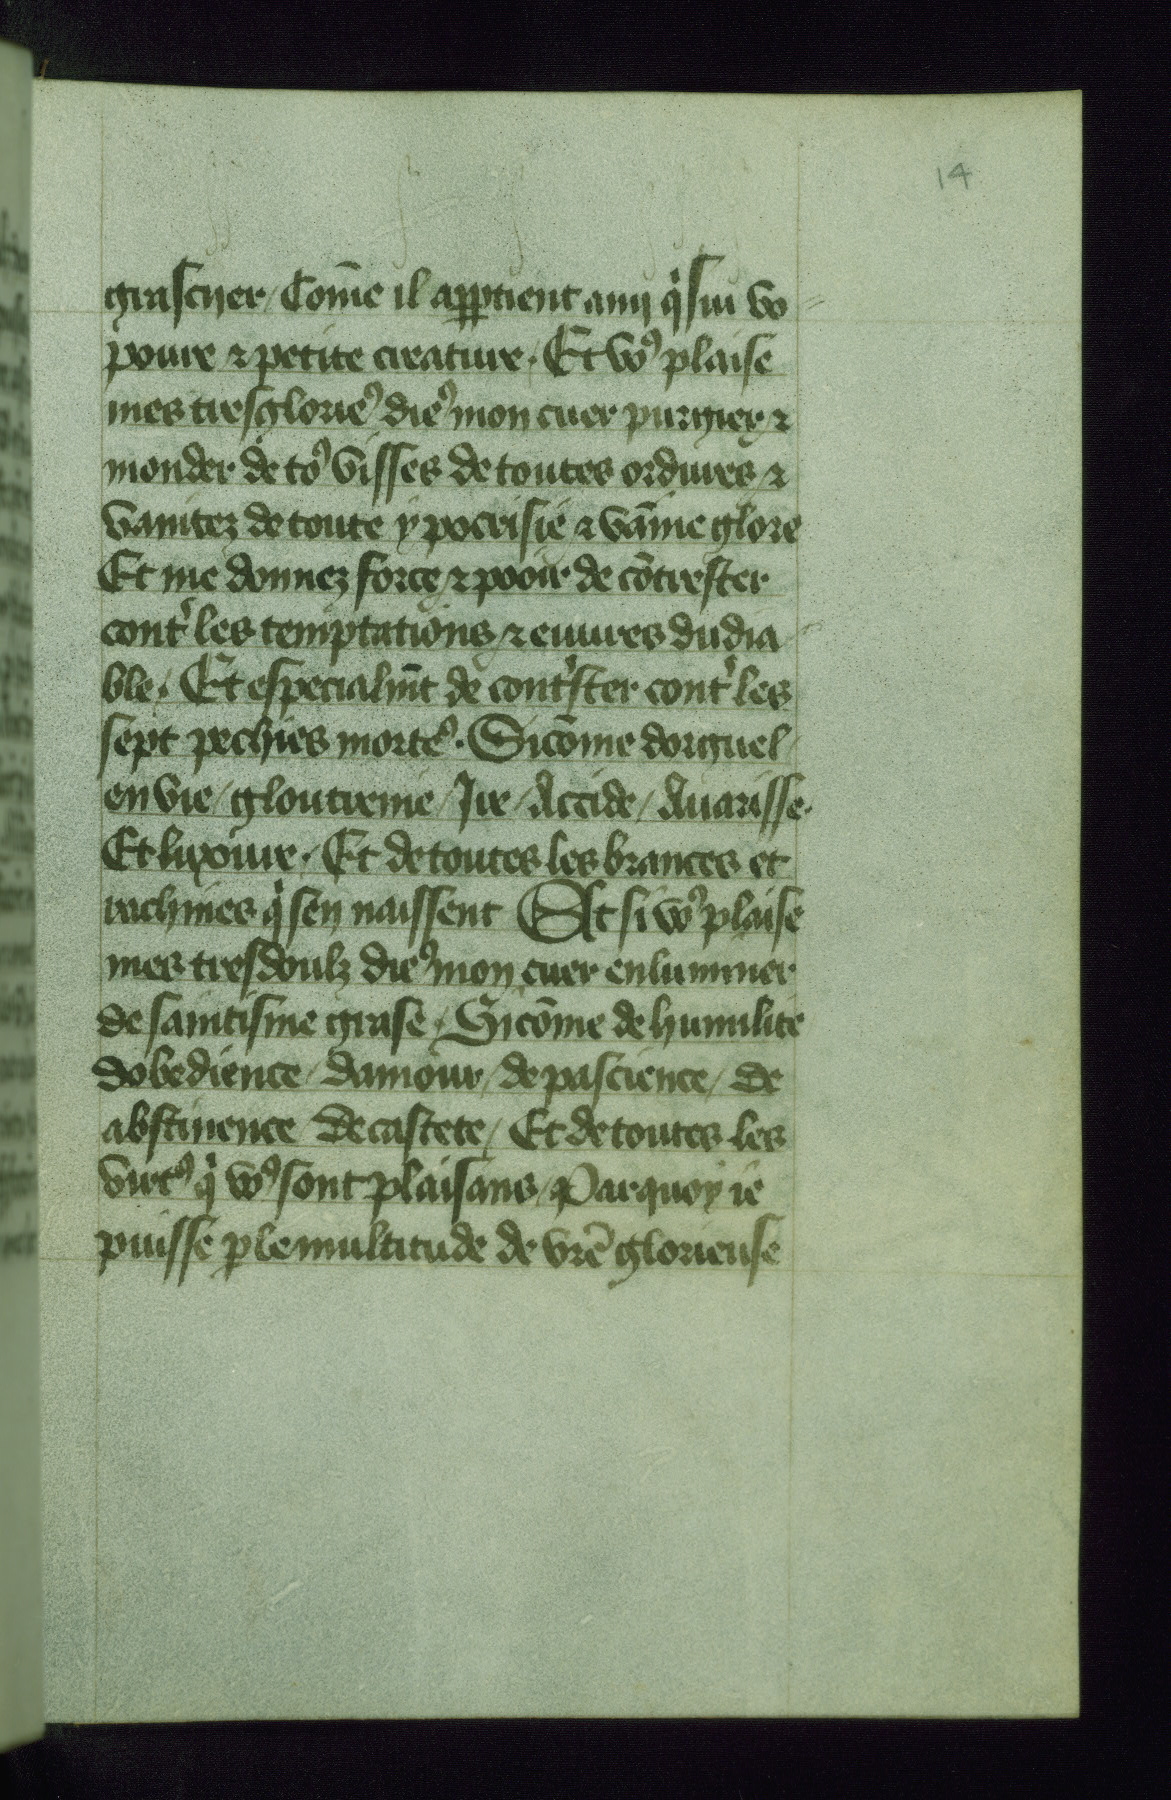 14
grascijer / Com̄e il apptient amy q̇ sui vo
poure ⁊ petite creature · Et voꝰ plaise
mes tresglorieꝰ dieꝰ mon cuer purgier ⁊
monder de toꝰ visses de toutes ordures ⁊
vanitez de toute ypocrisie ⁊ vāine glore
Et me donnez force ⁊ pooir de cōtrester
contᷓ les temptations ⁊ euures du dia
ble · Et especialm̄t de contᷓster contᷓ les
sept pechies morteꝰ · Sicōme dorguel /
envie / gloutrenie / Ire / Accide / Auarisse ·
Et luxoure · Et de toutes les brances et
rachines q̇ sen naissent Et si voꝰ plaise
mes tresdoulz dieꝰ mon cuer enluminer
de saintisme grase / Sicōme de humilite
dobedience / damour / de pascience / de
abstinence de castete / Et de toutes les
virtꝰ q̇ voꝰ sont plaisans / Par quoy ie
puisse ꝑ le multitude de vr̄e glorieuse